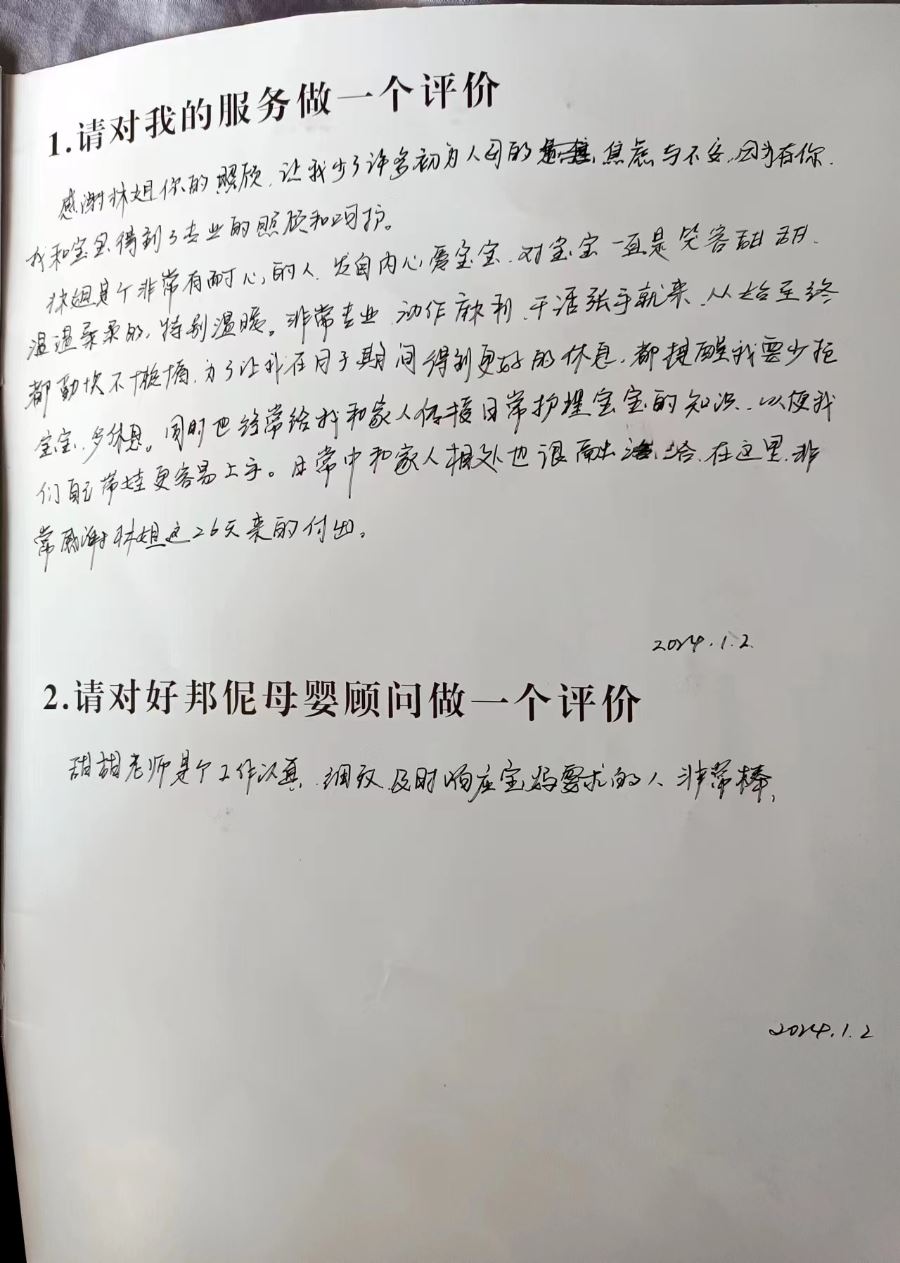 1.请对我的服务做一个评价
感谢林姐你的照顾，让我少了许多初为人母的焦虑与不安，因为有你，
我和宝宝得到了专业的照顾和呵护。
林姐是个非常有耐心的人，发自内心爱宝宝，对宝宝一直是笑容甜甜，
温温柔柔的，特别温暖。非常专业，动作麻利，干活张手就来，从始至终
都勤快不慵懒，为了让我在月子期间得到更好的休息，都提醒我要少抱
宝宝，多休息。同时也经常给我和家人传授日常护理宝宝的知识，以便我
们自己带娃更容易上手。日常中和家人相处也很融洽，在这里，非
常感谢林姐这26天来的付出。
2024.1.2
2.请对好邦伲母婴顾问做一个评价
甜甜老师是个工作认真，细致，及时响应宝妈需求的人，非常棒，
2024.1.2